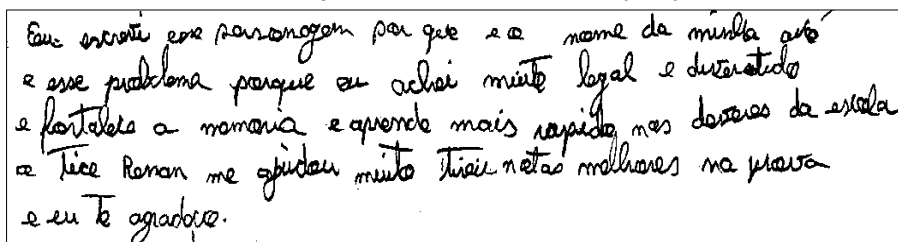 Eu escreti esse personagem por que e o nome da minha avó
e esse problema porque eu achei muito legal e divertido
e fortalece a memoria e aprende mais rapido nas deveres da escola
o Tice Renan me ajudou muito tirei notas melhores na prova
e eu te agradoço.